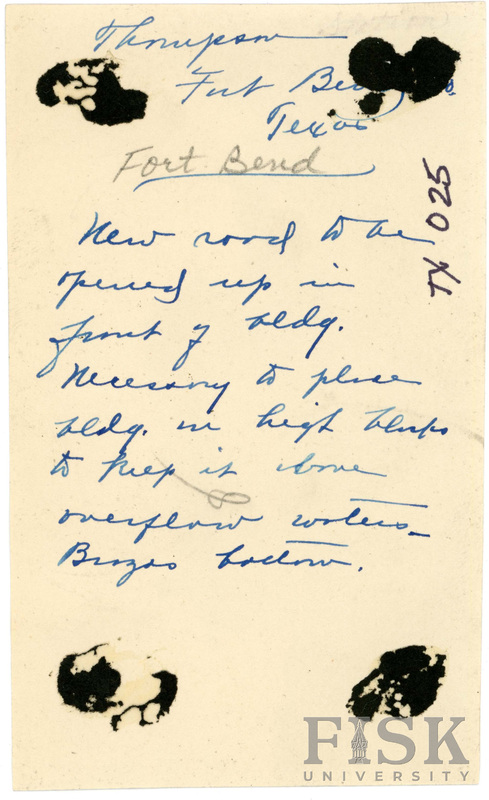 Thompson
Fort Bend Co.
Texas
Fort Bend
TX 025
New road to be
opened up in
front of bldg.
Necessary to place
bldg. on high
to keep it above
overflow waters
Brazos bottom.
FISK
UNIVERSITY